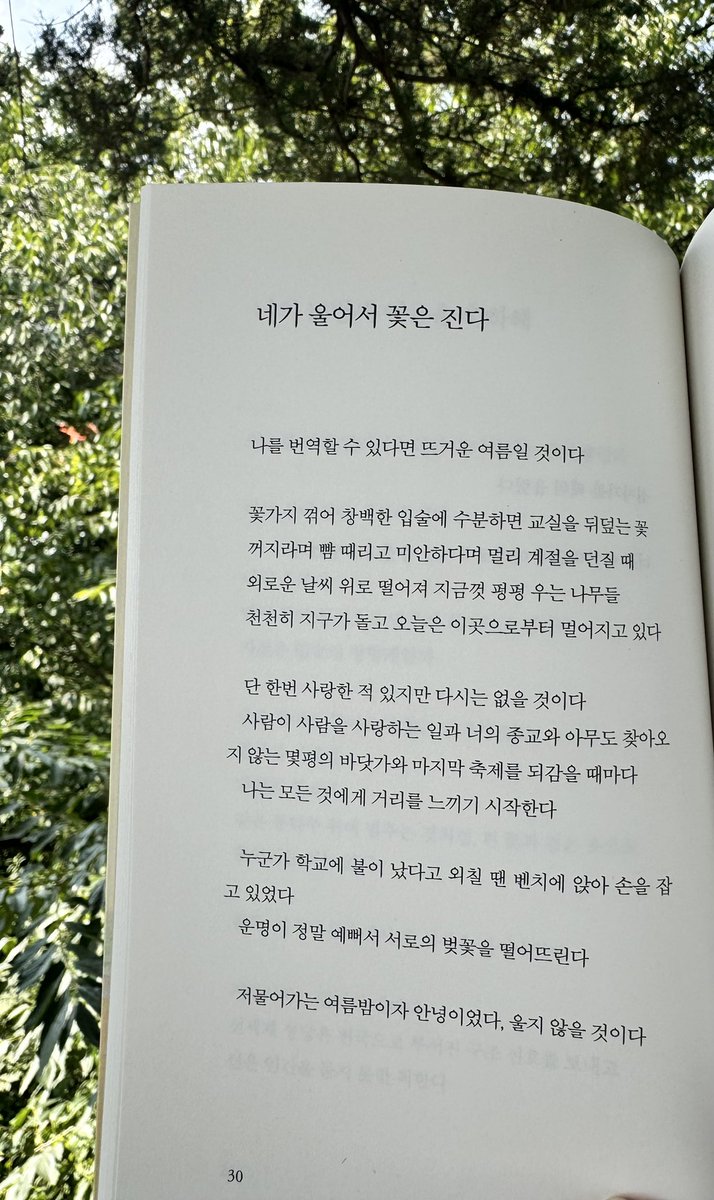 네가 울어서 꽃은 진다
나를 번역할 수 있다면 뜨거운 여름일 것이다
꽃가지 꺾어 창백한 입술에 수분하면 교실을 뒤덮는 꽃
꺼지라며 뺨 때리고 미안하다며 멀리 계절을 던질 때
외로운 날씨 위로 떨어져 지금껏 펑펑 우는 나무들
천천히 지구가 돌고 오늘은 이곳으로부터 멀어지고 있다
단 한번 사랑한 적 있지만 다시는 없을 것이다
사람이 사람을 사랑하는 일과 너의 종교와 아무도 찾아오
지 않는 몇평의 바닷가와 마지막 축제를 되감을 때마다
나는 모든 것에게 거리를 느끼기 시작한다
누군가 학교에 불이 났다고 외칠 땐 벤치에 앉아 손을 잡
고 있었다
운명이 정말 예뻐서 서로의 벚꽃을 떨어뜨린다
저물어가는 여름밤이자 안녕이었다, 울지 않을 것이다
30